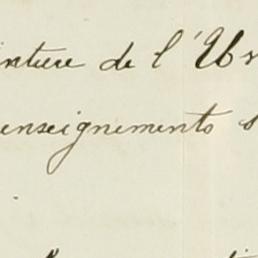 inture de l'Ur
enseignements s